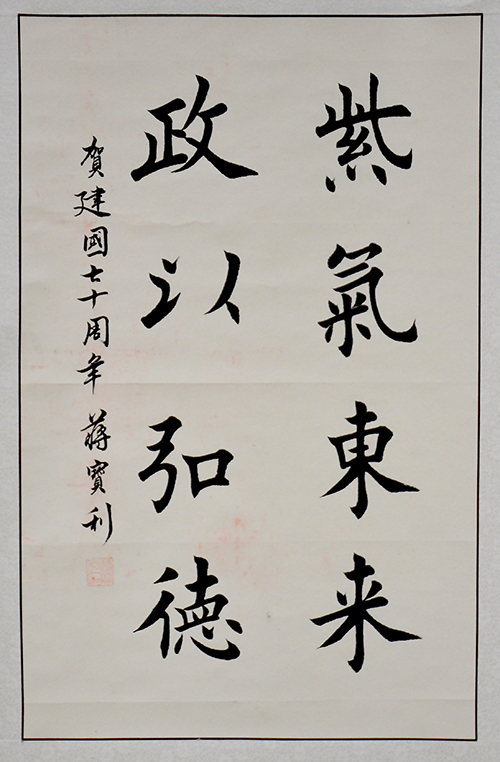 紫氣東来
政以弘德
賀建國七十周年 蔣寶利